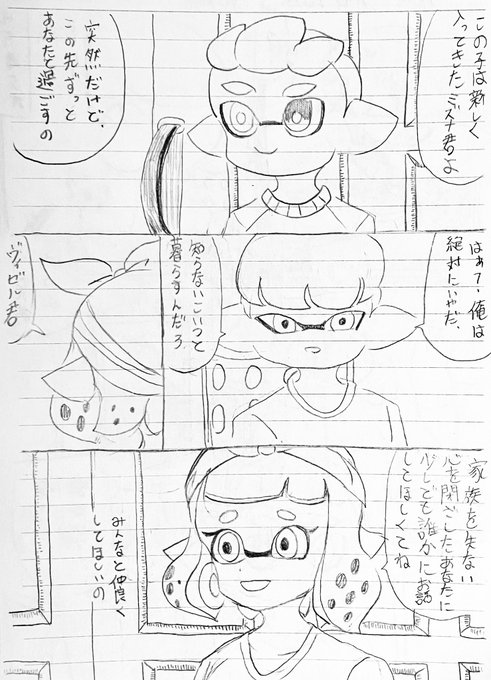 この子は新しく
入ってきたミズナ君よ
突然だけど、
この先ずっと
あなたと過ごすの
はぁ?、俺は
絶対にいやだ、
知らないこいつと
暮らすんだろ
ヴィゼル君
家族を失ない
心を閉ざしたあなたに
少しでも誰かにお話
してほしくてね
みんなと仲良く
してほしいの